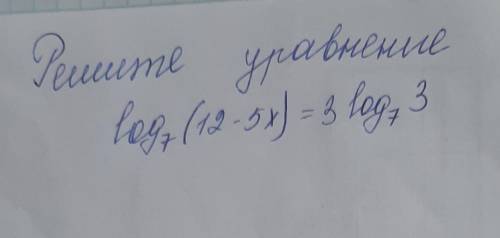 Решите уравнение
log₇(12-5x)=3 log₇3